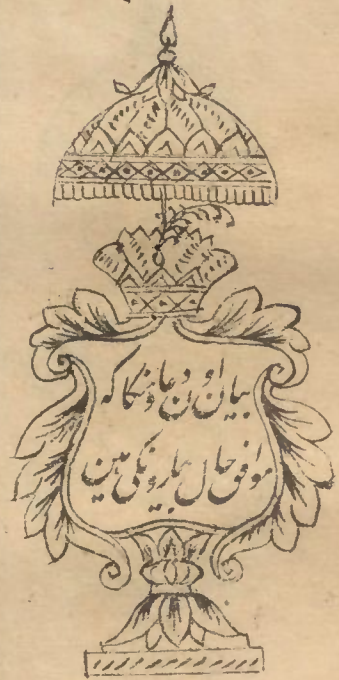 بیان اون دعاونکا که
موافق حال بیارونکی هین